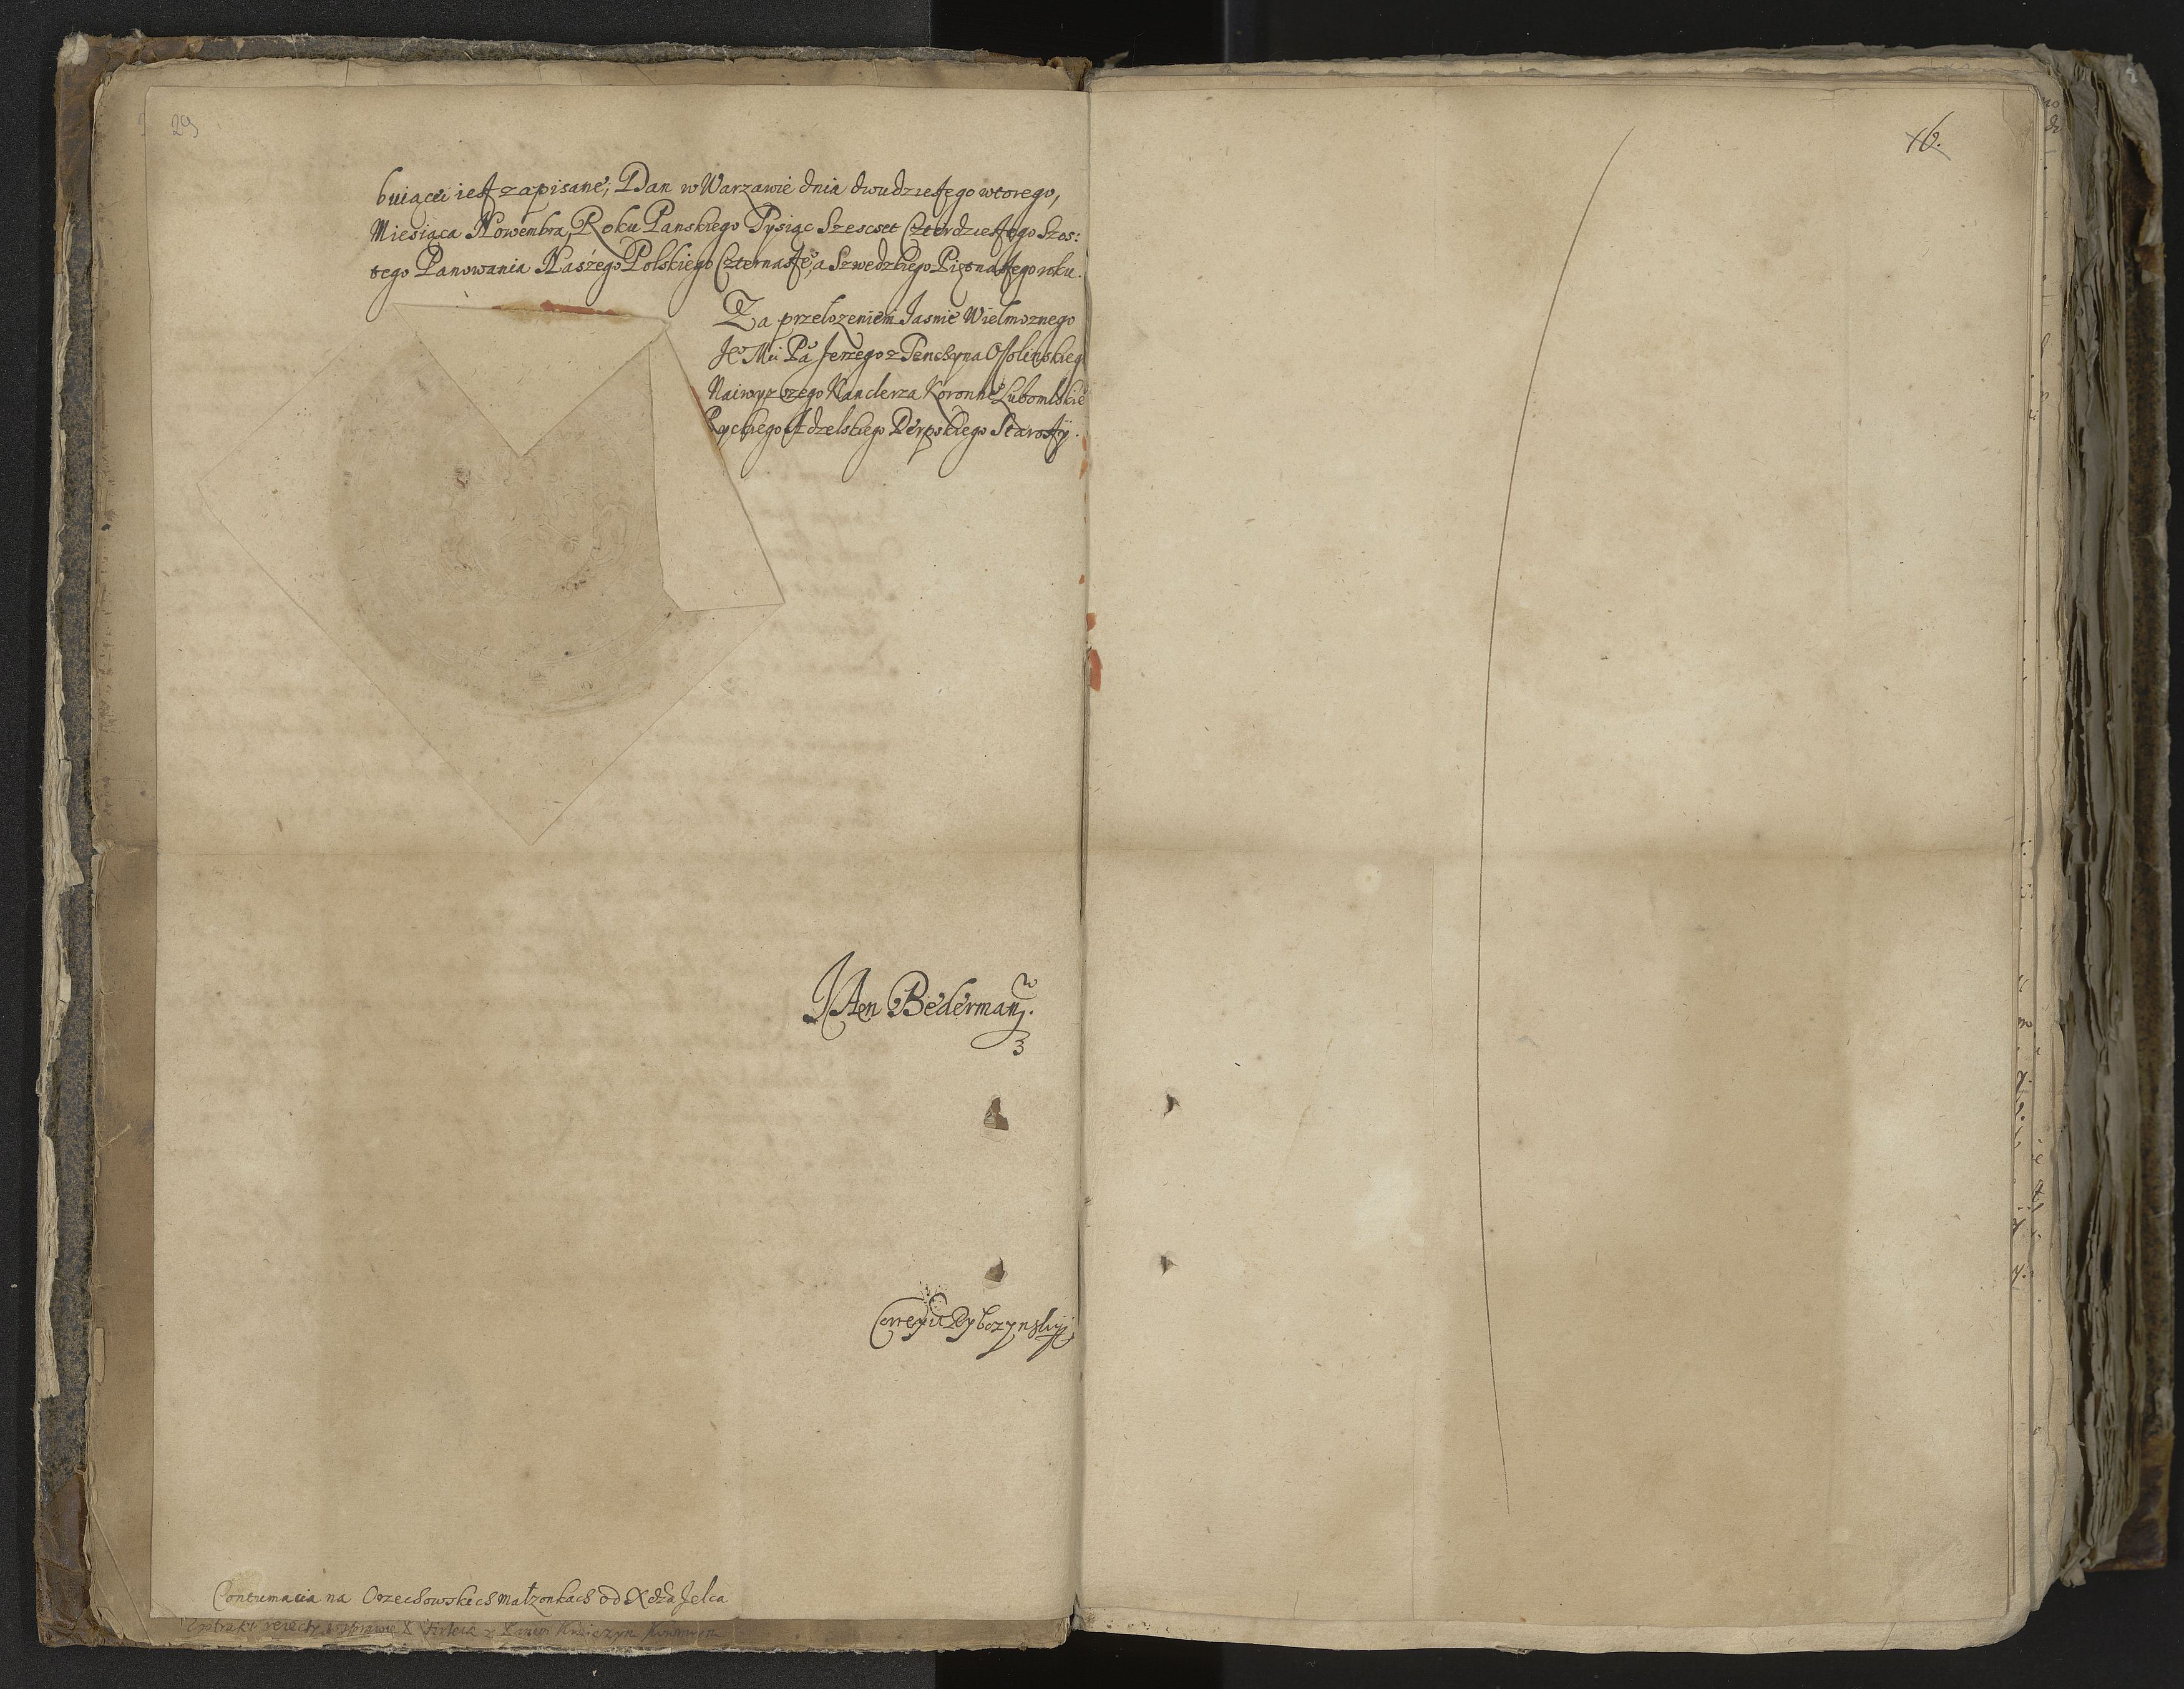 29
buiącei iest zapisane; Dan w Warzawie dnia dwudziestego wtorego,
Miesiąca Nowembra, Roku Panskiego Tysiąc Szescset Czterdziestego Szos:
tego Panowania Naszego Polskiego Czternaste, a Szwedzkiego Piętnastego roku.
Za przelozeniem Jasnie Wielmoznego
Je Mci Pa Jerzego z Tenczyna Ossolinskieg
Naiwyzszego Kanclerza Koronne Lubomlskie
Ryckiego Adzelskiego Derpskiego Starosty.
JAen Bederman
Correxit Rybczynsky
Contumacia na Orzechowskich Małzonkach od Xdza Jelca
16.